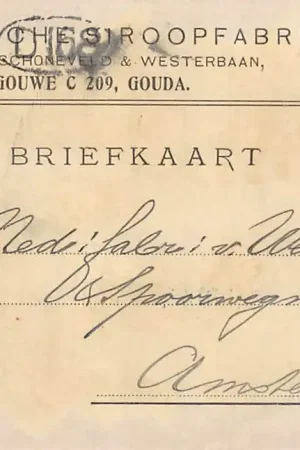 CHE SIROOPFABR
D168
SCHONEVELD & WESTERBAAN,
GOUWE C 209, GOUDA.
BRIEFKAART
Nedr. fabr. v. We
Spoorwegm
Amste